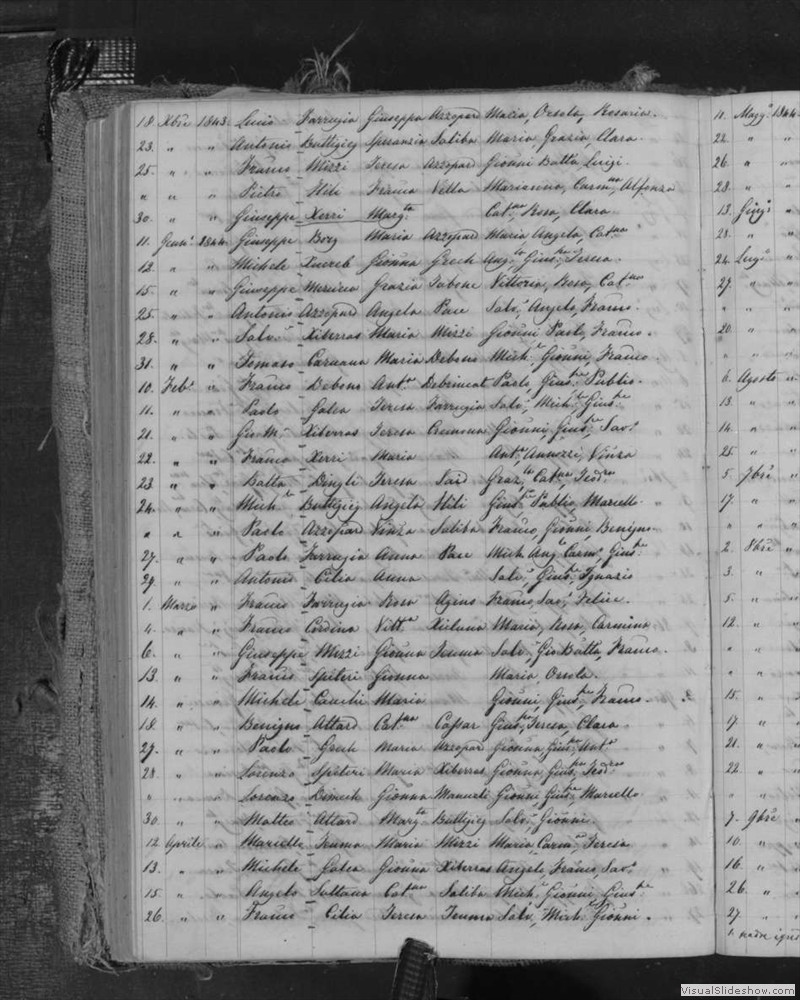 18 Xbre 1843 Luca Farrugia Giuseppa Azzopard Maria, Orsola, Rosaria.
23. " " Antonio Buttigieg Speranzia Saliba Maria Grazia, Clara
25. " " Franco Mizzi Teresa Azzopard Gionni Batta Luigi.
" " " Pietro Stili Franca Vella Marianna, Carmna, Alfonza
30. " " Giuseppe Xerri Margta Catna, Rosa, Clara
11. Genn. 1844 Giuseppe Borg Maria Azzopard Maria Angela, Catna
12. " " Michele Xuereb Gionna Grech Angla, Giuspa, Teresa.
15 " " Giuseppe Grazia Tabone Vittoria, Rosa, Catna
25 " " Antonio Azzopard Angela Pace Salv. Angelo, Franco.
28. " " Salv. Xiberras Maria Mizzi Gionni Paolo, Franco.
31. " " Tomaso Caruana Maria Debono Mich. Gionni, Franco
10. Feb. " Franco Debono Anta Debrincat Paolo, Giuspe Publio.
11. " " Paolo Galea Teresa Farrugia Salv. Michle Giuspe
21. " " Gio Ma. Xiberras Teresa Cremona Gionni, Giuspe, Sav.
22. " " Franco Xerri Maria Anta, Annuzzi, Vinza
23 " " Batta Dingli Teresa Said Grazla Catna, Teodra
24. " " Michle Buttigieg Angela Stili Giuspe Publio, Marcello
" " " Paolo Azzopard Vinza Saliba Franco, Gionni, Benigno
27. " " Paolo Farrugia Anna Pace Mich. Anglo Carmo, Giuspe
29. " " Antonio Cilia Anna Salv. Giuspe, Ignazio
1. Marzo " Franco Farrugia Rosa Agius Franco, Sav. Felice.
4. " " Franco Cordina Vitta Xicluna Maria, Rosa, Carmina
6 " " Giuseppe Mizzi Gionna Tcuma Salv. Gio Batta, Franco.
13. " " Franco Spiteri Gionna Maria, Orsola.
14. " " Michele Maria Gionni, Giuspe, Franco.
18 " " Benigno Attard Catna Cassar Giuspa, Teresa, Clara
27. " " Paolo Grech Maria Azzopar Gionna, Giuspa, Anta
28 " " Lorenzo Spiteri Maria Xiberras Gionna, Giuspa Teodra
" " " Lorenzo Dimech Gionna Gionni Giuspe, Marcello
30. " " Matteo Attard Margta Buttigieg Salv. Gionni.
12 Aprile " Marcello Tcuma Maria Mizzi Maria, Carmna, Teresa
13. " " Michele Galea Gionna Xiberras Angelo, Franco, Sav.
15. " " Angelo Sultana Catna Saliba Mich. Gionni, Giuspe
26. " " Franco Cilia Teresa Tcuma Salv. Mich. Gionni.
11. Magg. 1844
22. " "
26 " "
28. " "
13. Giug. "
28. " "
24. Lugl. "
27. " "
" " "
20. " "
" " "
6. Agosto "
13. " "
14. " "
25. " "
5. 7bre "
17. " "
" " "
2. 8bre "
3. " "
5. " "
12. " "
" " "
" " "
15. " "
17. " "
21. " "
22. " "
" " "
7. 9bre "
10. " "
16. " "
26. " "
27. " "
VisualSlideshow.com